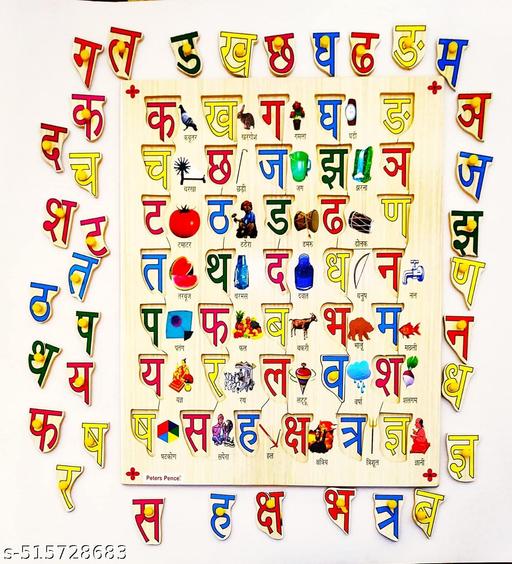 ग ल ड ख छ घ ढ ङ म
क ञ
द च ज
श ट झ
त ण
ठ प न
थ य ध
फ ष ज्ञ
र
क ख ग घ ङ
कबूतर खरगोश गमला घड़ी
च छ ज झ ञ
चरखा छड़ी जग झरना
ट ठ ड ढ ण
टमाटर ठठेरा डमरू ढोलक
त थ द ध न
तरबूज थरमस दवात धनुष नल
प फ ब भ म
पतंग फल बकरी भालू मछली
य र ल व श
यज्ञ रथ लट्टू वर्षा शलगम
ष स ह क्ष त्र ज्ञ
षटकोण सपेरा हल क्षत्रिय त्रिशूल ज्ञानी
Peters Pence
स ह क्ष भ त्र ब
s-515728683